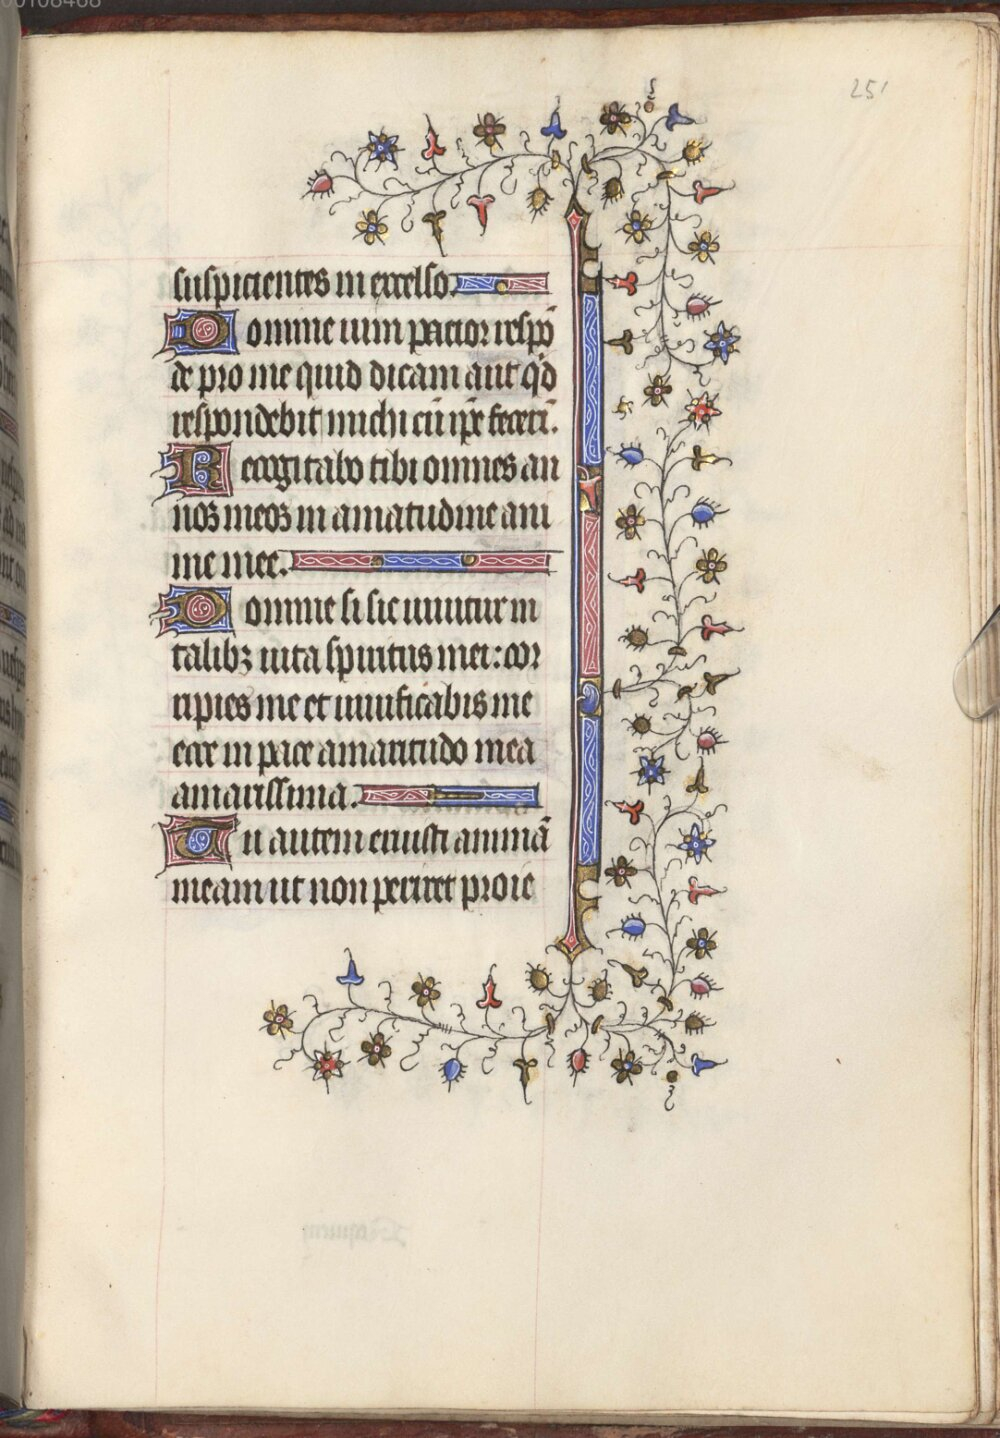 00108468
251
suspicientes in excelso.
Domine vim patior respō
de pro me quid dicam aut qd̄
respondebit michi cū ip̄e fecerī.
Recogitabo tibi omnes an
nos meos in amaritudine ani
me mee.
Domine si sic vivitur in
talibꝫ vita spiritus mei: cor
ripies me et vivificabis me
ecce in pace amaritudo mea
amarissima.
Tu autem eruisti animā
meam ut non periret proie